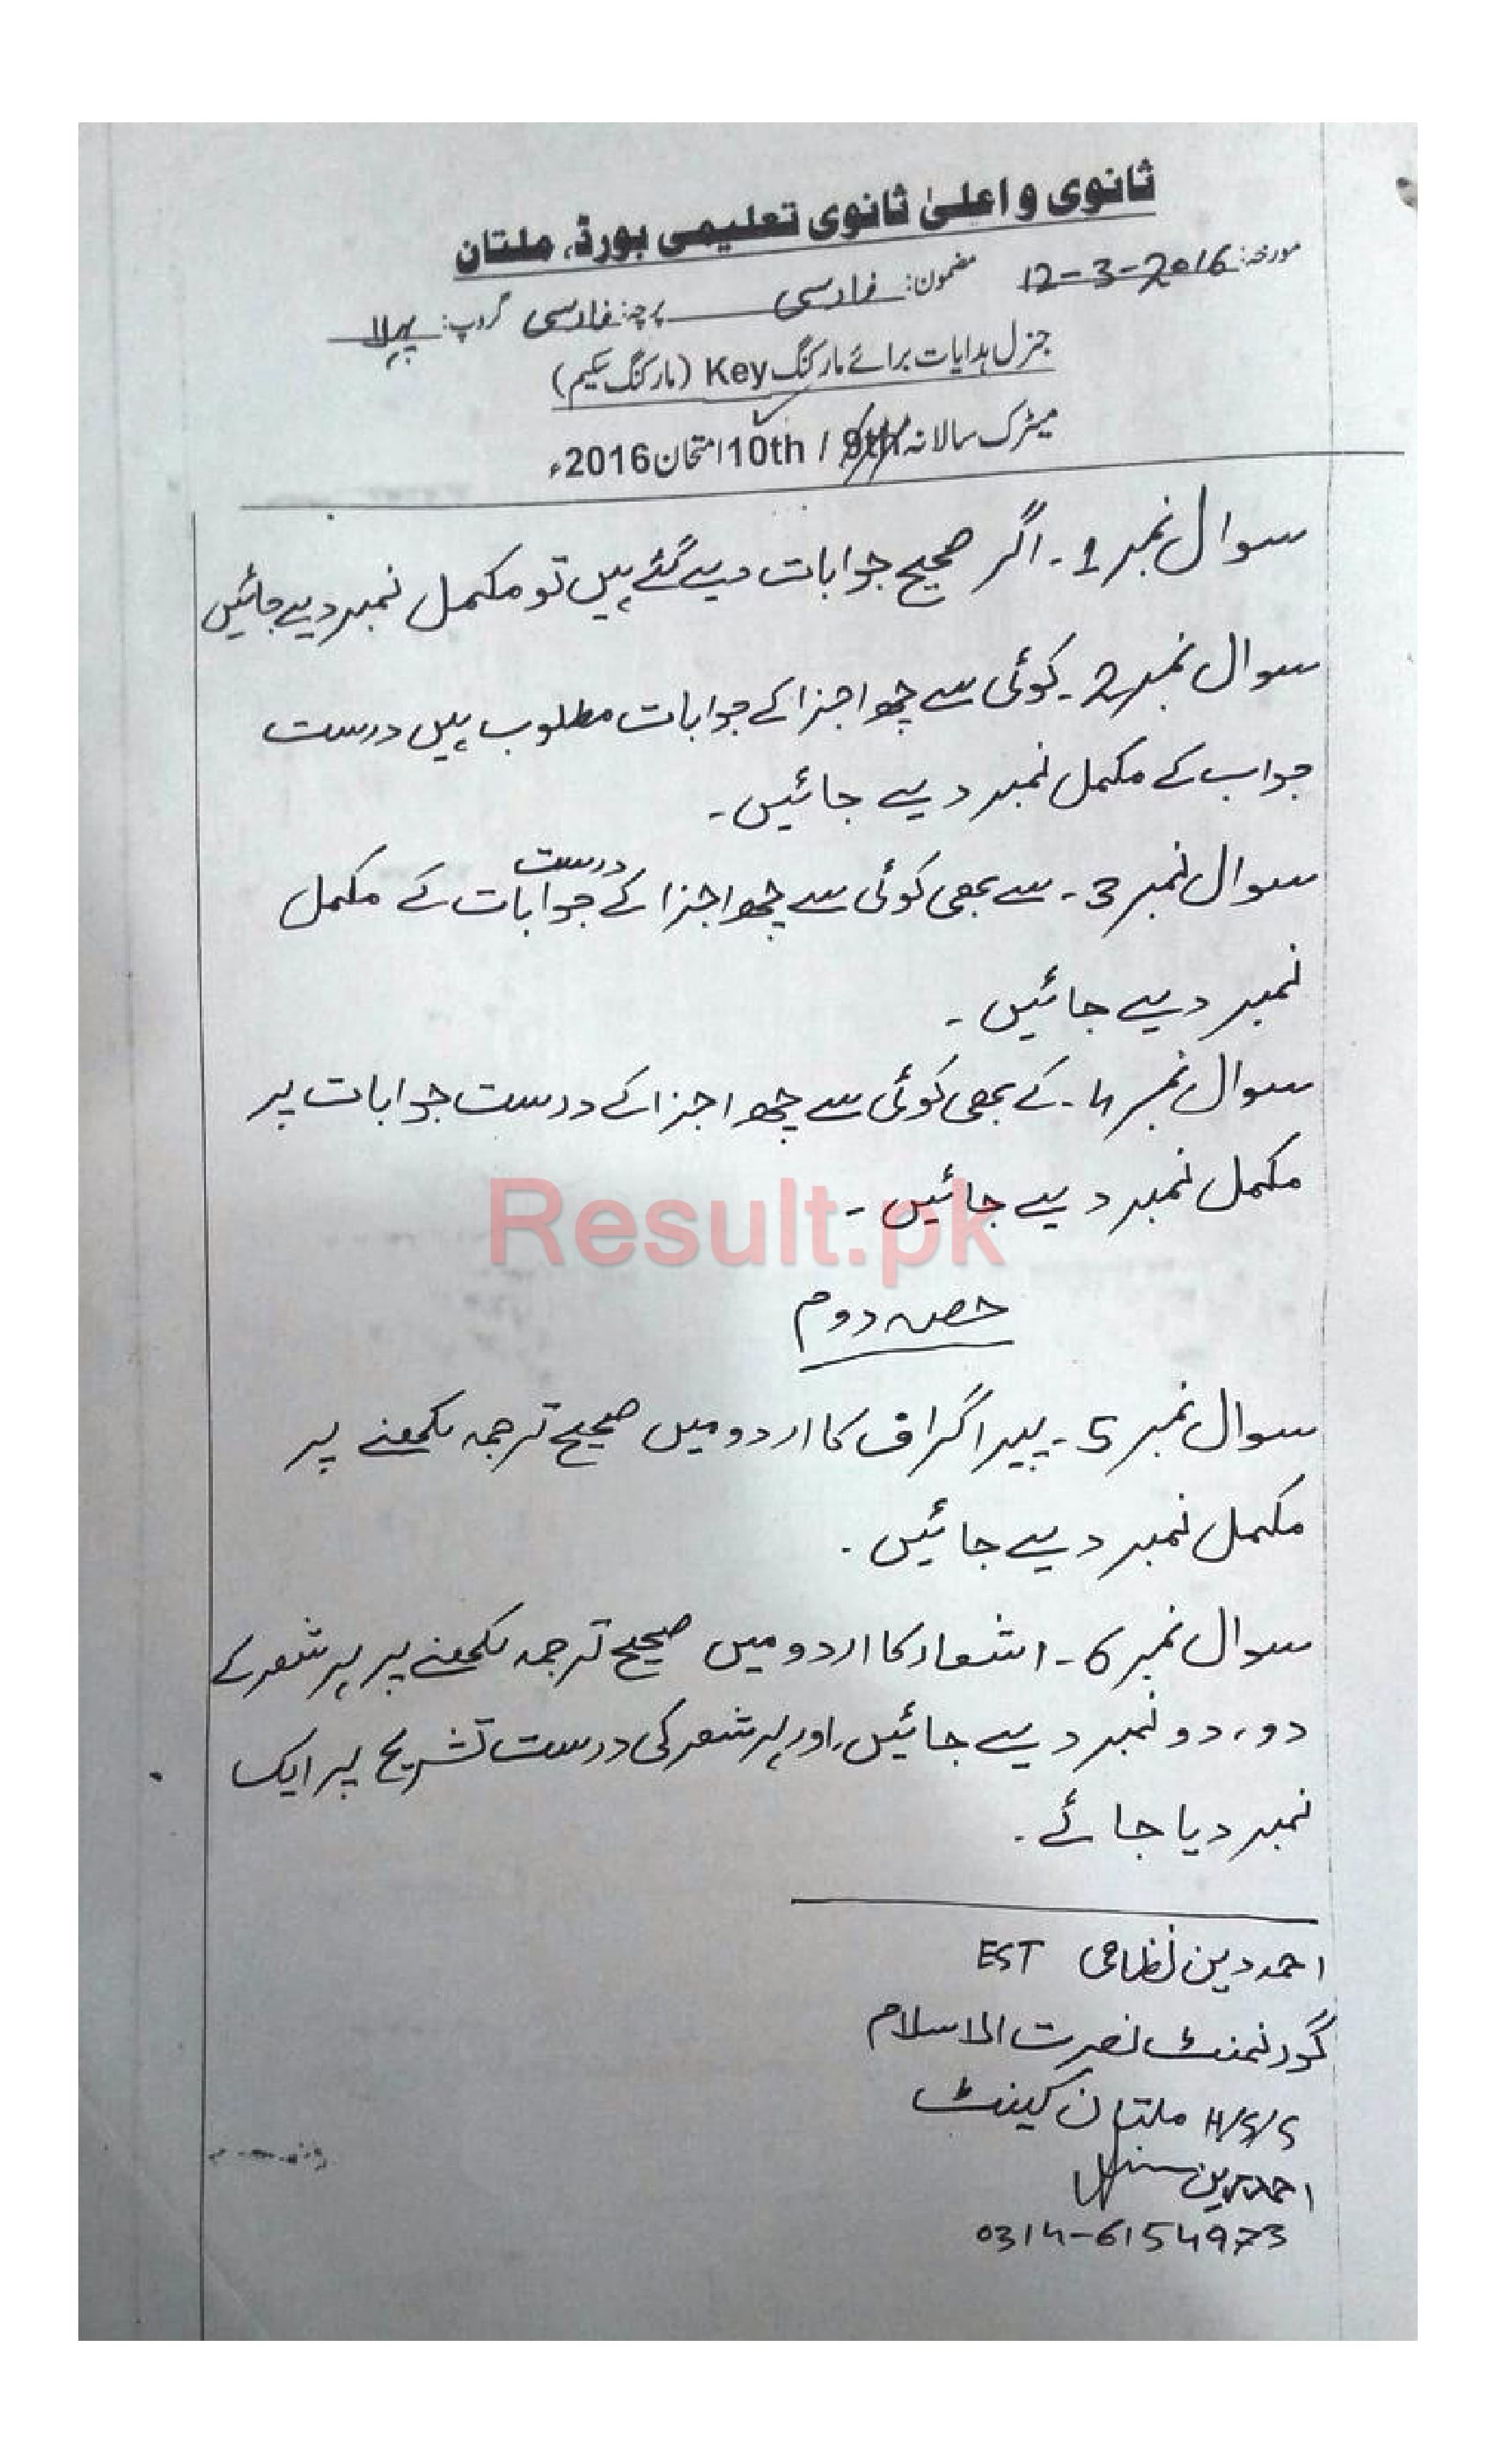 ثانوی و اعلیٰ ثانوی تعلیمی بورڈ، ملتان
مورخہ: 12-3-2016 مضمون: فارسی پرچہ: فارسی گروپ: پہلا
جنرل ہدایات برائے مارکنگ Key (مارکنگ سکیم)
میٹرک سالانہ 9th / 10th امتحان 2016ء
سوال نمبر 1۔ اگر صحیح جوابات دیے گئے ہیں تو مکمل نمبر دیے جائیں
سوال نمبر 2۔ کوئی سے چھ اجزا کے جوابات مطلوب ہیں درست
جواب کے مکمل نمبر دیے جائیں۔
سوال نمبر 3۔ سے بھی کوئی سے چھ اجزا کے درست جوابات کے مکمل
نمبر دیے جائیں۔
سوال نمبر 4۔ کے بھی کوئی سے چھ اجزا کے درست جوابات پر
مکمل نمبر دیے جائیں۔
Result.pk
حصہ دوم
سوال نمبر 5۔ پیراگراف کا اردو میں صحیح ترجمہ لکھنے پر
مکمل نمبر دیے جائیں۔
سوال نمبر 6۔ اشعار کا اردو میں صحیح ترجمہ لکھنے پر ہر شعر کے
دو، دو نمبر دیے جائیں، اور ہر شعر کی درست تشریح پر ایک
نمبر دیا جائے۔
احمد دین نظامی EST
گورنمنٹ نصرت الاسلام
H/S/S ملتان کینٹ
احمد دین
0314-6154973